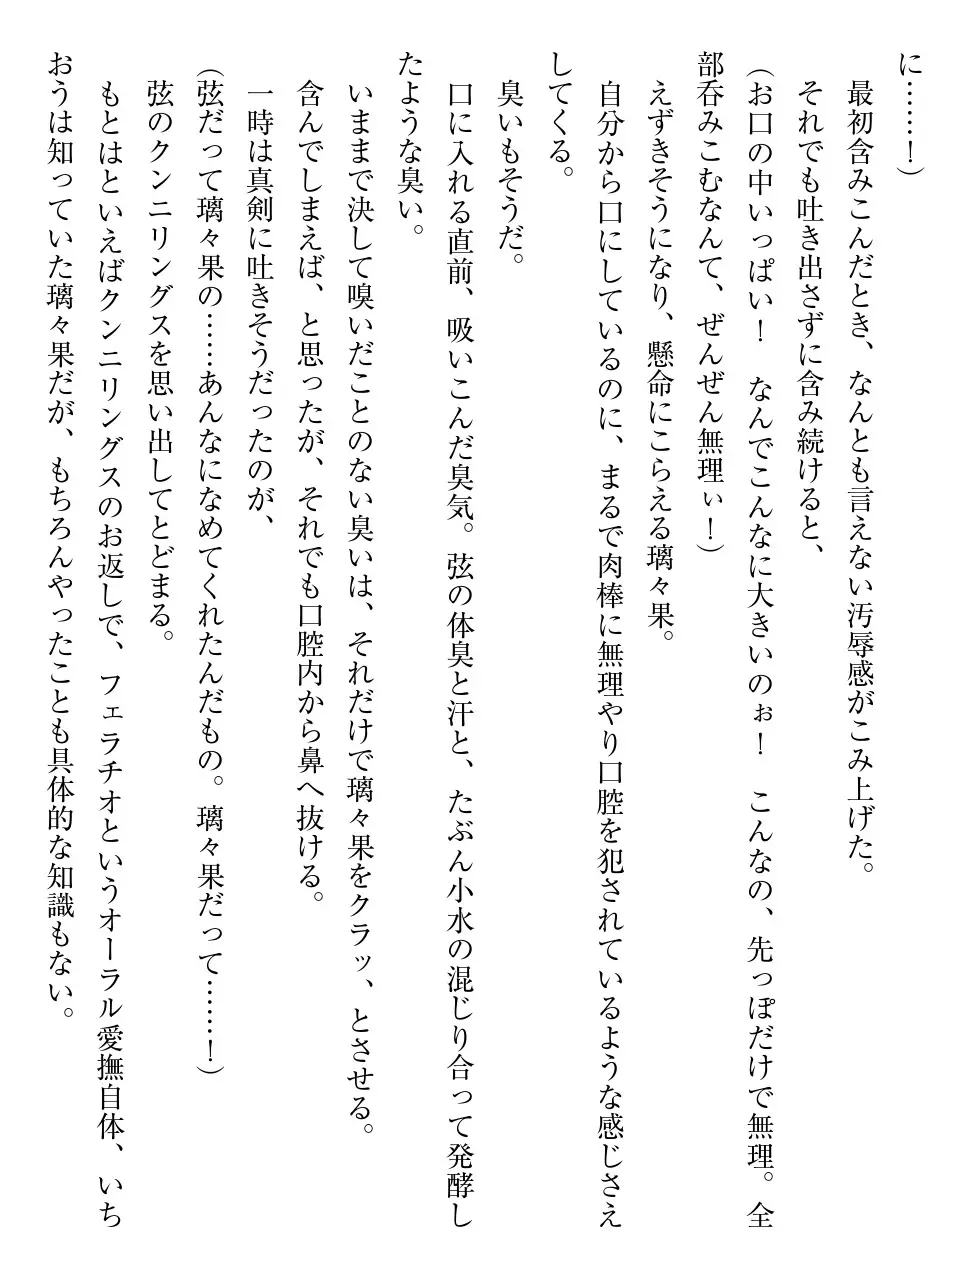 に……！）
最初含みこんだとき、なんとも言えない汚辱感がこみ上げた。
それでも吐き出さずに含み続けると、
（お口の中いっぱい！　なんでこんなに大きいのぉ！　こんなの、先っぽだけで無理。全
部呑みこむなんて、ぜんぜん無理ぃ！）
えずきそうになり、懸命にこらえる璃々果。
自分から口にしているのに、まるで肉棒に無理やり口腔を犯されているような感じさえ
してくる。
臭いもそうだ。
口に入れる直前、吸いこんだ臭気。弦の体臭と汗と、たぶん小水の混じり合って発酵し
たような臭い。
いままで決して嗅いだことのない臭いは、それだけで璃々果をクラッ、とさせる。
含んでしまえば、と思ったが、それでも口腔内から鼻へ抜ける。
一時は真剣に吐きそうだったのが、
（弦だって璃々果の……あんなになめてくれたんだもの。璃々果だって……！）
弦のクンニリングスを思い出してとどまる。
もとはといえばクンニリングスのお返しで、フェラチオというオーラル愛撫自体、いち
おうは知っていた璃々果だが、もちろんやったことも具体的な知識もない。